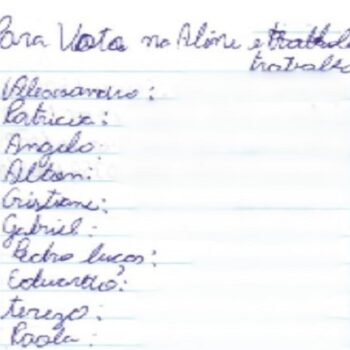 Para Vota na Aline e trabalho
trabalho
Alexsandro:
Patricia:
Angelo:
Cristiane:
Gabriel:
Pedro lucas:
Eduardo:
tereza:
Paola: